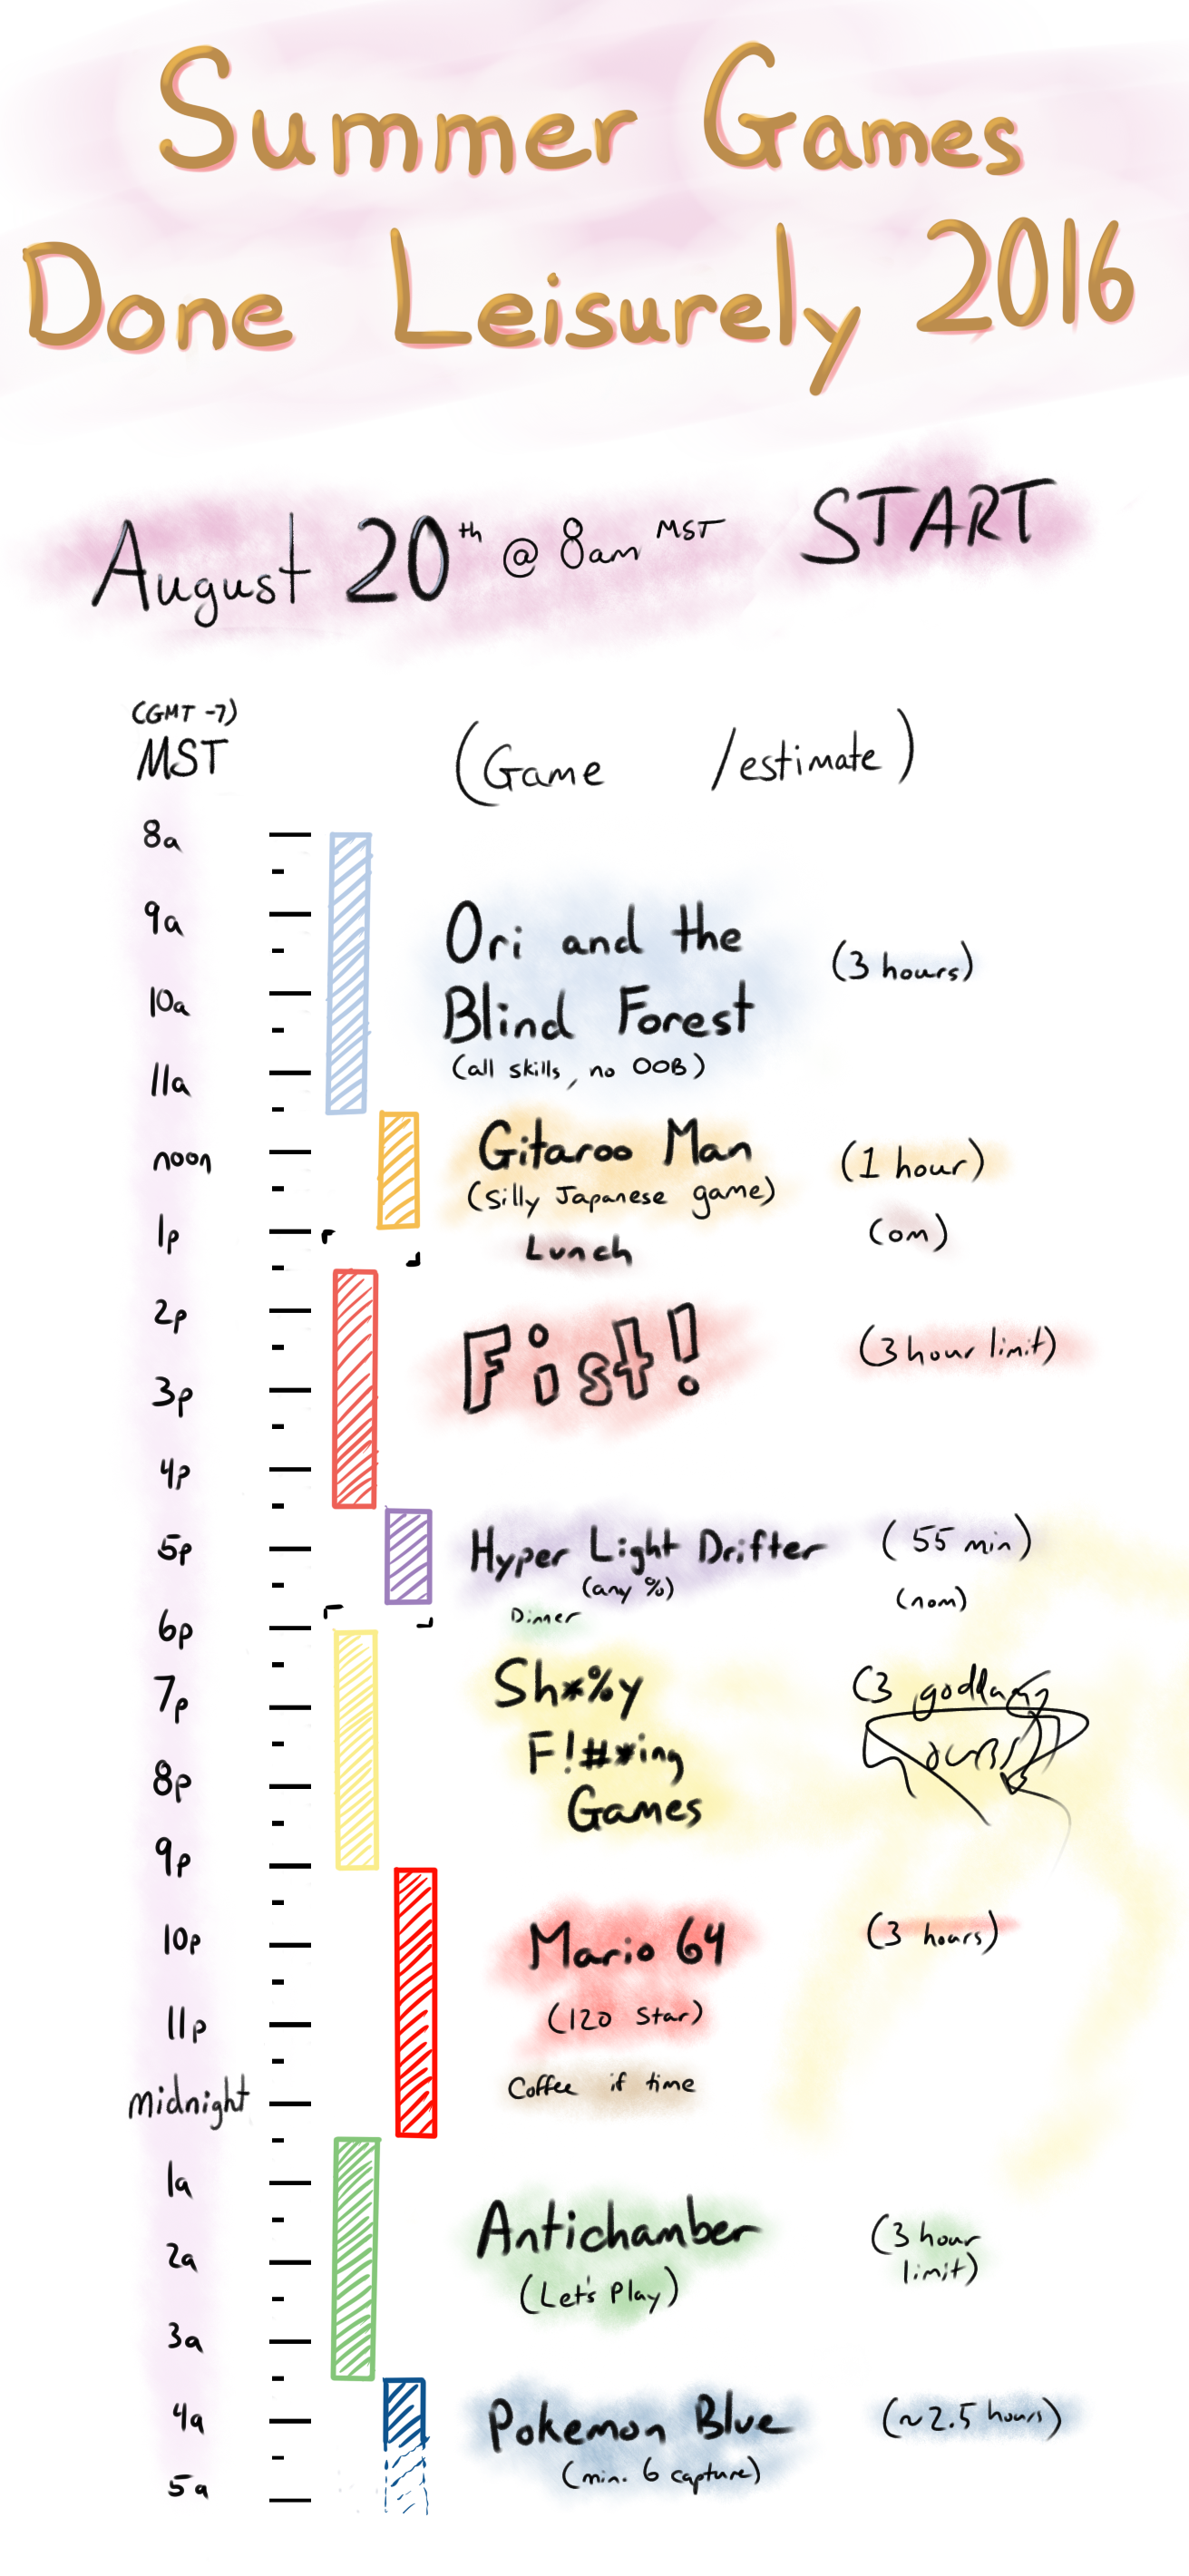 Summer Games
Done Leisurely 2016
August 20th @ 8am MST START
(GMT -7)
MST
(Game /estimate)
8a
9a
Ori and the
(3 hours)
10a
Blind Forest
11a
(all skills, no OOB)
noon
Gitaroo Man
(1 hour)
(silly Japanese game)
1p
Lunch
(om)
2p
Fist!
(3 hour limit)
3p
4p
5p
Hyper Light Drifter
(55 min)
(any %)
(nom)
Dinner
6p
7p
Sh*%y
(3 goddamn
F!#*ing
ours)
8p
Games
9p
10p
Mario 64
(3 hours)
11p
(120 Star)
Coffee if time
midnight
1a
Antichamber
(3 hour
limit)
2a
(Let's Play)
3a
4a
Pokemon Blue
(~2.5 hours)
(min. 6 capture)
5a